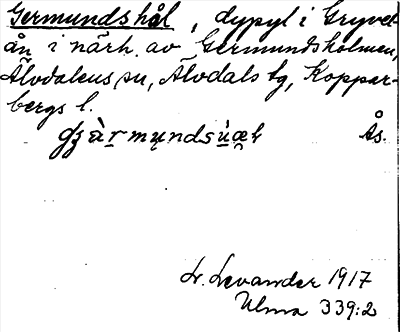 Germundshål, dypyl i Gryvel-
ån i närh. av Germundsholmen,
Älvdalens sn, Älvdals tg, Koppar-
bergs l.
Ås.
Lr. Levander 1917
Ulma 339:2